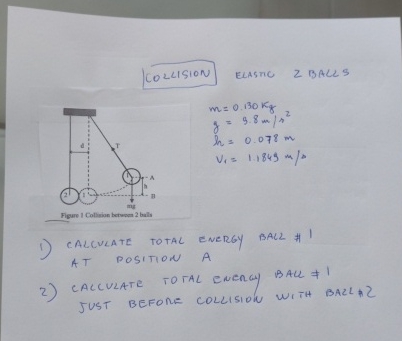 COLLISION ELASTIC 2 BALLS
m = 0.130 Kg
g = 9.8 m/s²
h = 0.078 m
V₁ = 1.1849 m/s
d
T
1
A
h
2
1
B
mg
Figure 1 Collision between 2 balls
1) CALCULATE TOTAL ENERGY BALL #1
AT POSITION A
2) CALCULATE TOTAL ENERGY BALL #1
JUST BEFORE COLLISION WITH BALL #2